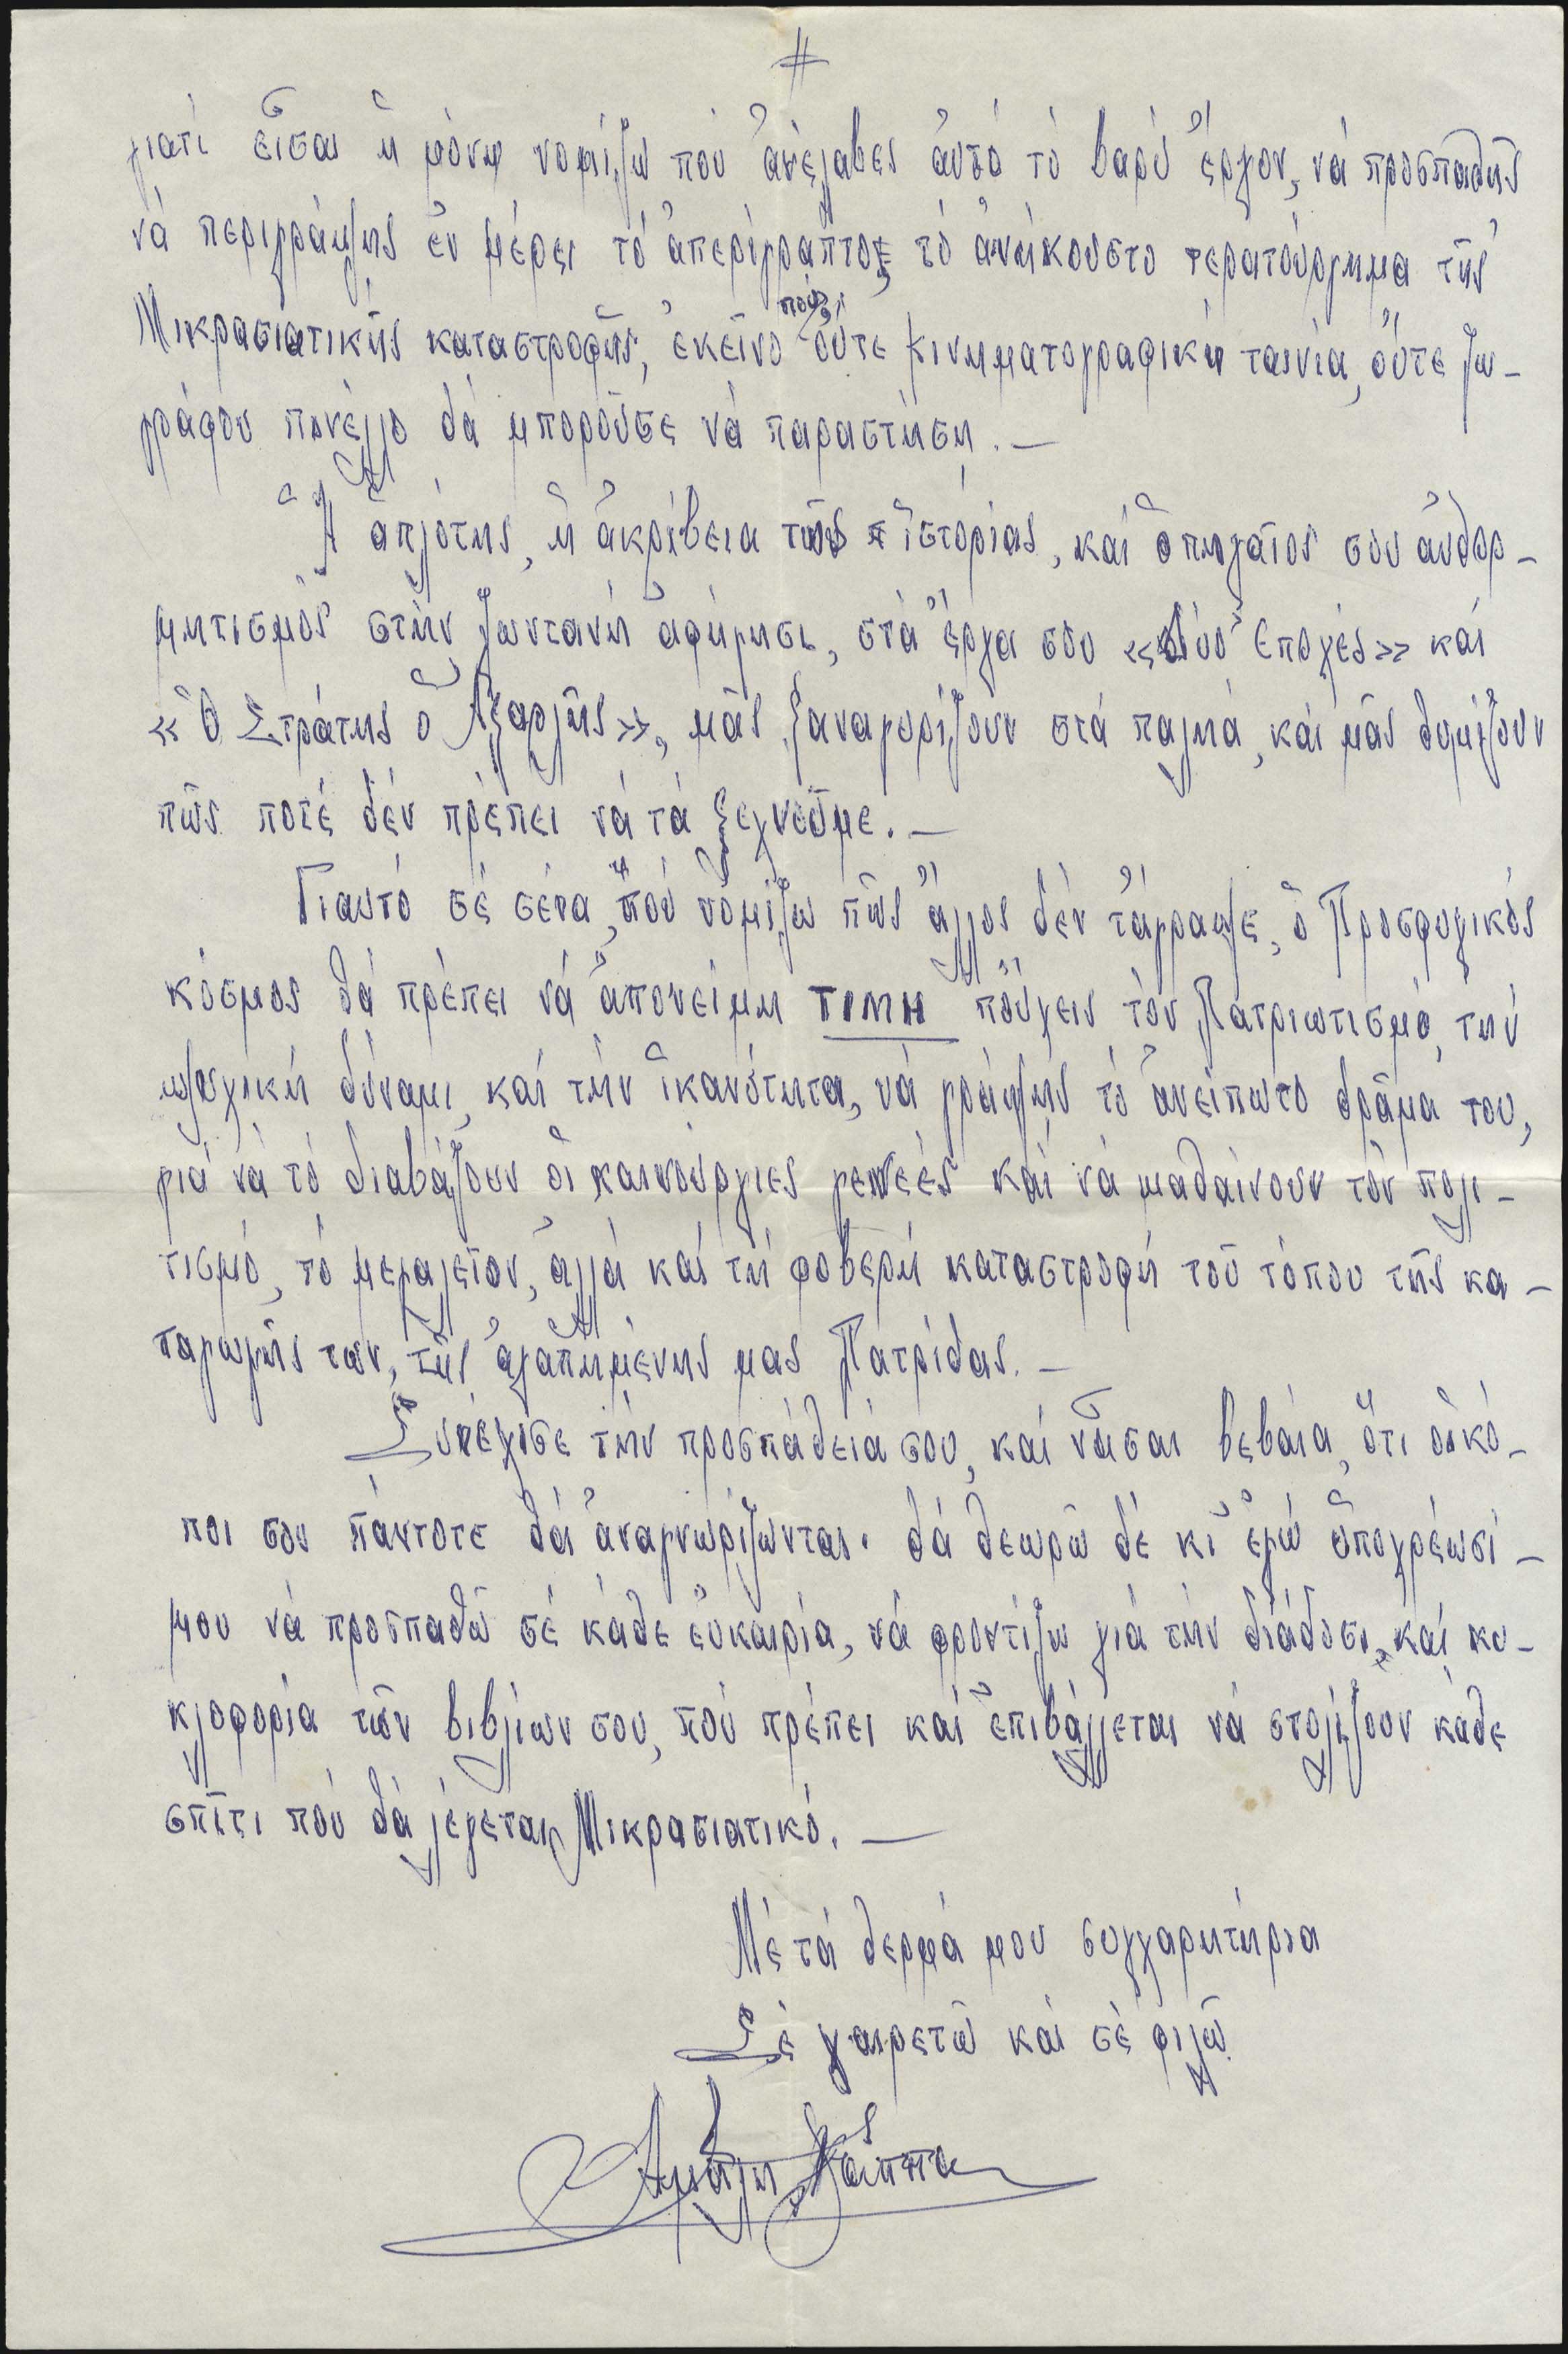 #
γιατί εἶσαι ἡ μόνη νομίζω πού ἀνέλαβες ἀυτό τό βαρύ ἔργον, νά προσπαθῆς
νά περιγράψης ἐν μέρει τό ἀπερίγραπτο, τό ἀνήκουστο τερατούργημα τῆς
Μικρασιατικῆς καταστροφῆς, ἐκεῖνο πού οὔτε κινηματογραφική ταινία, οὔτε ζω-
γράφου πινέλλο θά μποροῦσε νά παραστήση. —
Ἡ ἁπλότης, ἡ ἀκρίβεια τῆς ἱστορίας, καί ὁ πηγαῖος σου ἀυθορ-
μητισμός στήν ζωντανή ἀφήγησι, στά ἔργα σου «Δύο Ἐποχές» και
«Ὁ Στράτης ὁ Ἀξαρλῆς», μᾶς ξαναγυρίζουν στά παληά, καί μᾶς θυμίζουν
πῶς ποτέ δέν πρέπει νά τά ξεχνοῦμε. —
Γιαυτό σέ σένα, πού νομίζω πῶς ἄλλος δέν τἄγραψε, ὁ Προσφυγικός
κόσμος θά πρέπει νά ἀπονείμη ΤΙΜΗ πούχεις τόν Πατριωτισμό, τήν
ψυχική δύναμι, καί τήν ἱκανότητα, νά γράψης τό ἀνείπωτο δρᾶμα του,
γιά νά τό διαβάζουν οἱ καινούργιες γενεές καί νά μαθαίνουν τόν πολι-
τισμό, τό μεγαλεῖον, ἀλλά καί τή φοβερή καταστροφή τοῦ τόπου τῆς κα-
ταγωγῆς των, τῆς ἀγαπημένης μας Πατρίδας. —
Συνέχισε τήν προσπάθειά σου, καί νᾶσαι βεβαία, ὅτι οἱ κό-
ποι σου πάντοτε θά ἀναγνωρίζωνται. θά θεωρῶ δέ κι ἐγώ ὑποχρέωσί-
μου νά προσπαθῶ σέ κάθε εὐκαιρία, νά φροντίζω γιά τήν διάδοσι, καί κυ-
κλοφορία τῶν βιβλίων σου, πού πρέπει καί ἐπιβάλλεται νά στολίζουν κάθε
σπίτι πού θά λέγεται Μικρασιατικό. —
Μέ τά θερμά μου συγχαρητήρια
Σέ χαιρετῶ καί σέ φιλῶ